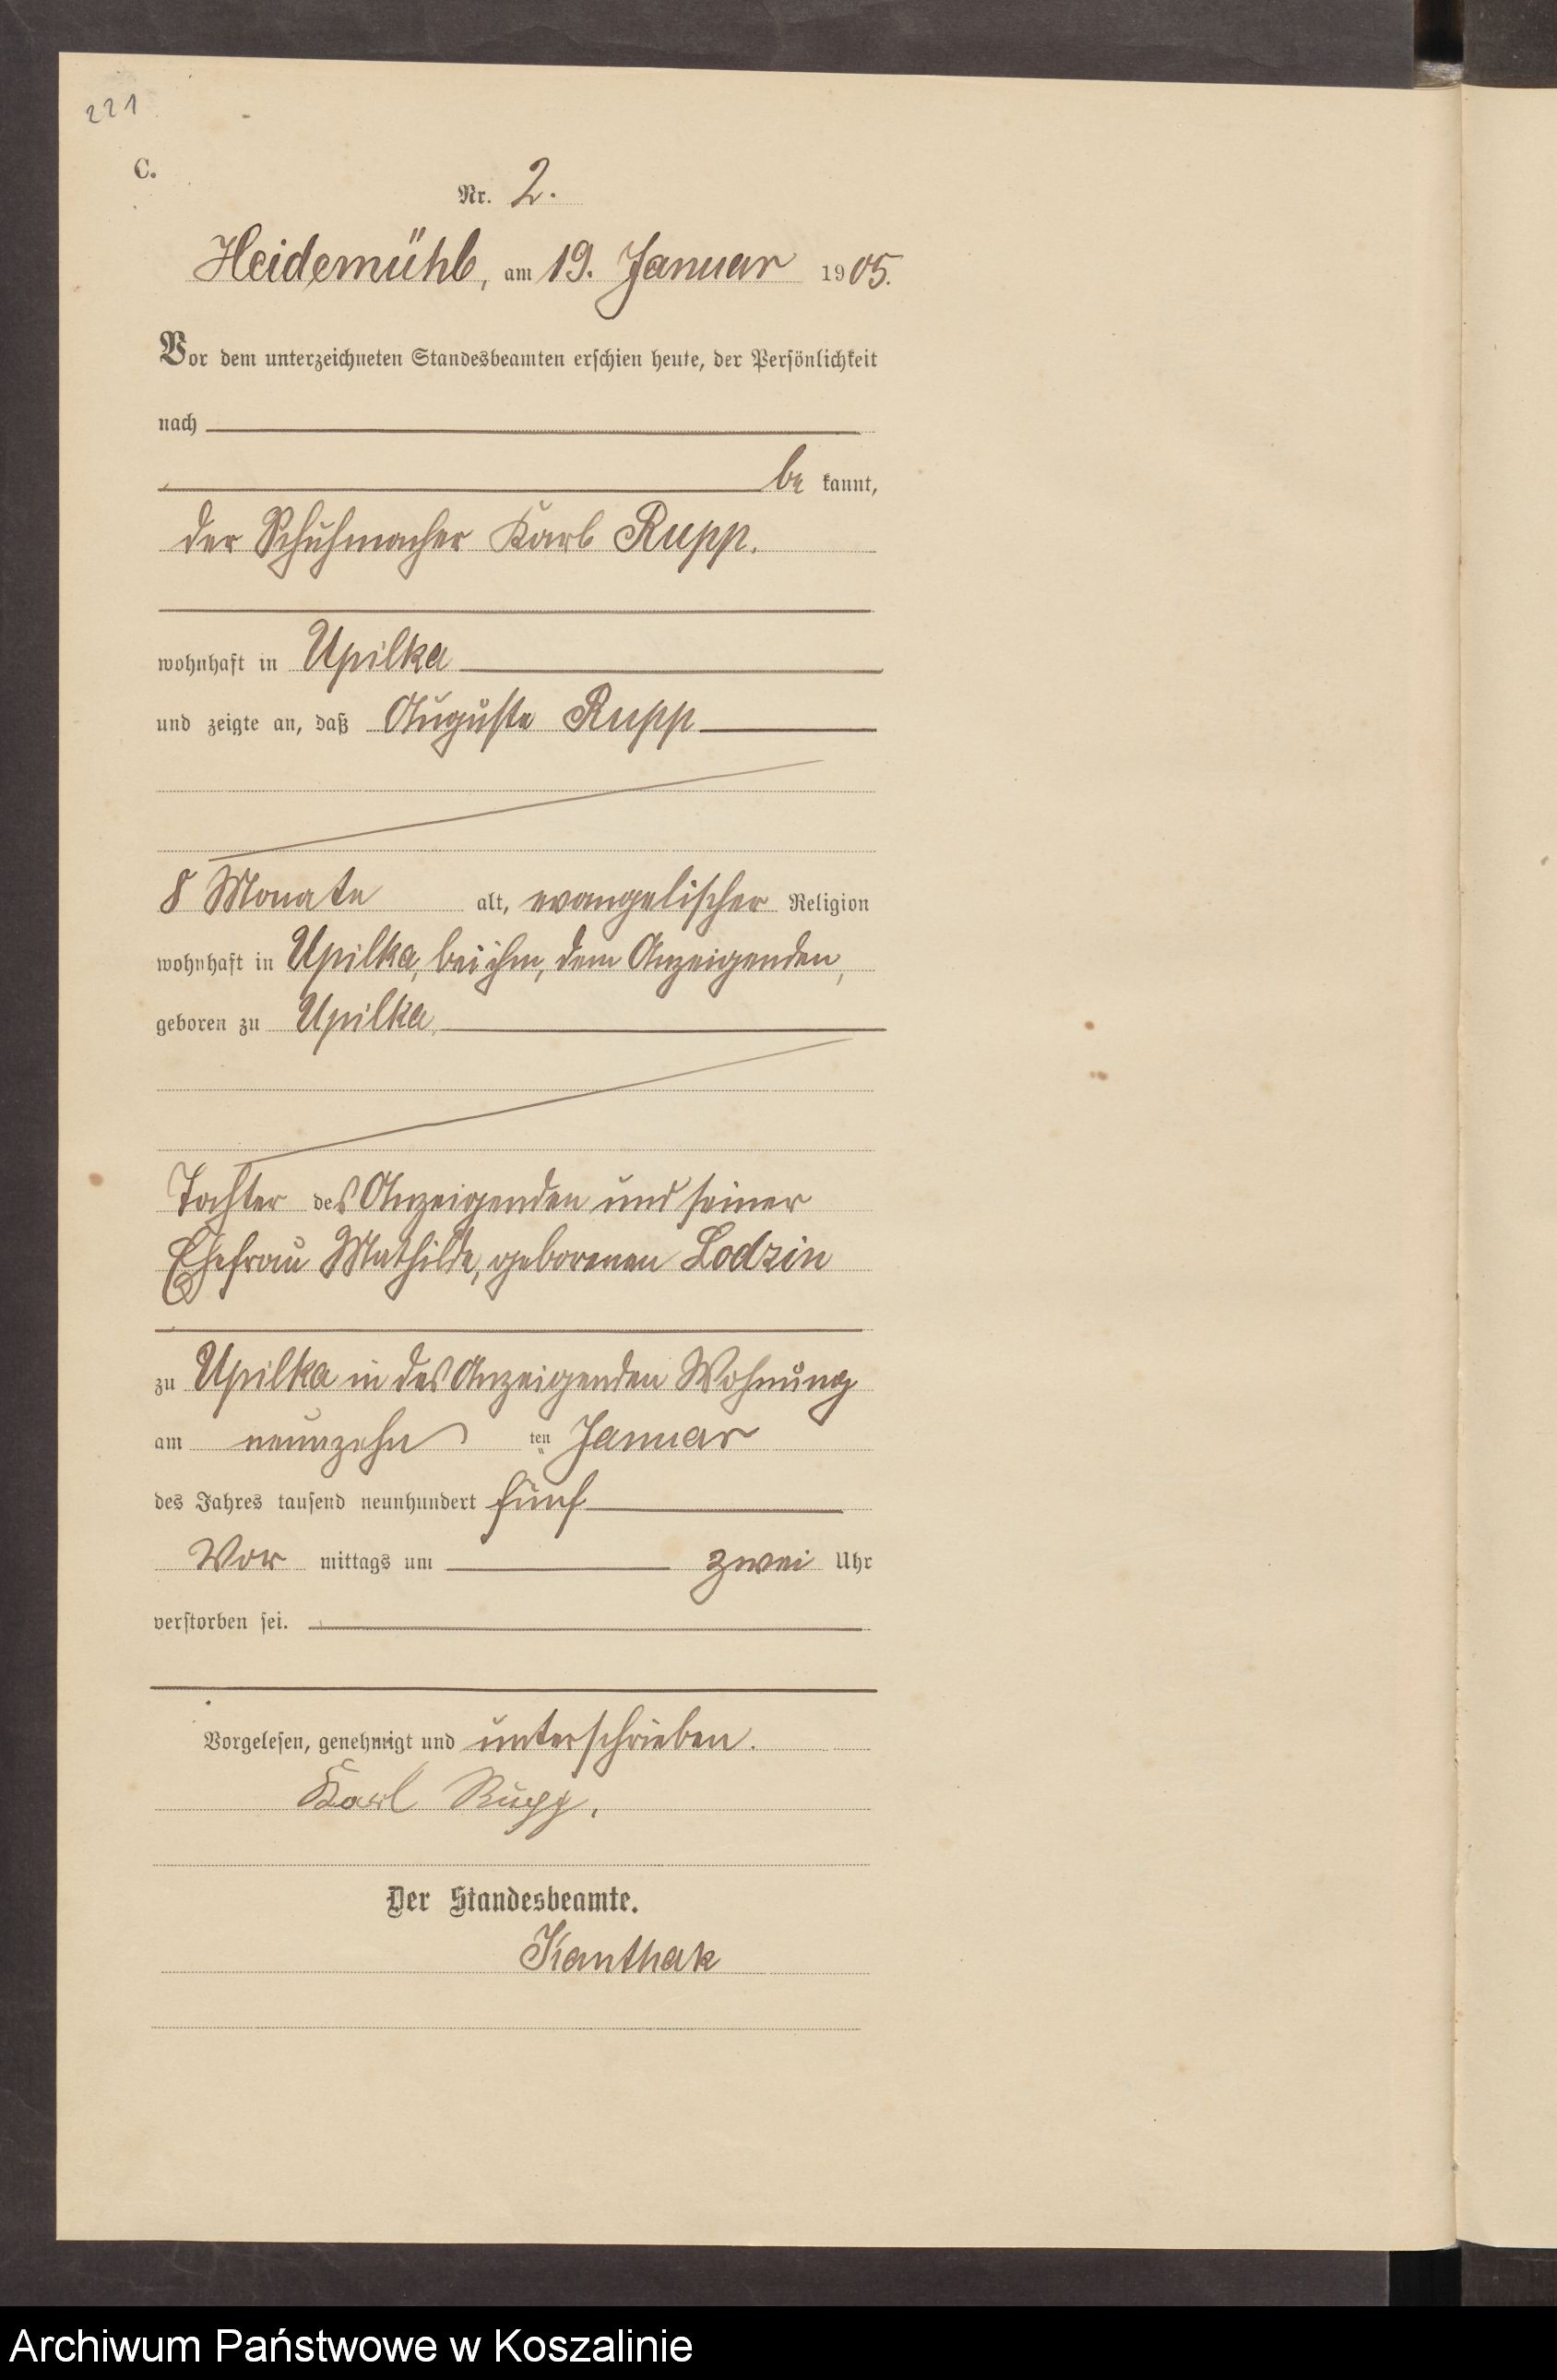 221
C.
Nr. 2.
Heidemühl, am 19. Januar 1905.
Vor dem unterzeichneten Standesbeamten erschien heute, der Persönlichkeit
nach
be kannt,
der Schuhmacher Karl Rupp.
wohnhaft in Upilka
und zeigte an, daß Auguste Rupp
8 Monate alt, evangelischer Religion
wohnhaft in Upilka, bei ihm, dem Anzeigenden,
geboren zu Upilka,
Tochter des Anzeigenden und seiner
Ehefrau Mathilde, geborenen Lodzin
zu Upilka in des Anzeigenden Wohnung
am neunzehn ten Januar
des Jahres tausend neunhundert fünf
Vor mittags um zwei Uhr
verstorben sei.
Vorgelesen, genehmigt und unterschrieben.
Karl Rupp.
Der Standesbeamte.
Kanthak
Archiwum Państwowe w Koszalinie